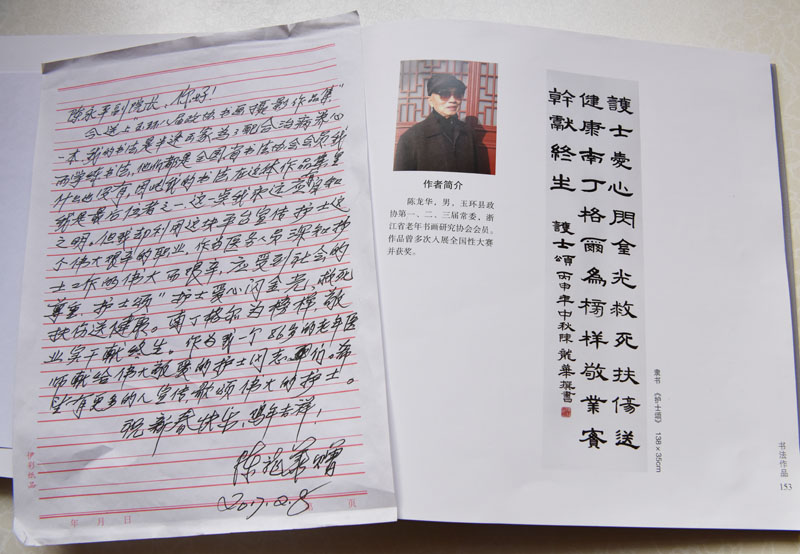 陈永平副院长,你好!
今送上"玉环八届政协书画摄影作品集"
一本,我的书法是半途出家,为了配合治病养心
而学练书法,他们都是全国省书法协会会员,我
什么也没有,因此我的书法在这 作品集里
就是最后位者之一,这一点我永远
之明。但我却利用这块平台宣传护士这
个伟大艰辛的职业,作为医务人员深知护
士工作的伟大而艰辛,应受到社会的
尊重,护士颂"护士爱心闪金光,救死
扶伤送健康。南丁格尔为榜样,敬
业实干献终生。作为我一个86岁的老年医
师献给伟大敬爱的护士同志们。希
望有更多的人宣传,歌颂伟大的护士。
祝新春快乐,鸡年吉祥!
陈龙华赠
2017.2.8
年 月 日
第 页
伊彩纸品
作者简介
陈龙华,男,玉环县政
协第一、二、三届常委,浙
江省老年书画研究协会会员。
作品曾多次入展全国性大赛
并获奖。
護士愛心閃金光救死扶傷送
健康南丁格爾為榜樣敬業實
幹獻終生
護士頌丙申年中秋陳龍華撰書
隶书 《护士颂》 138×35cm
书法作品
153